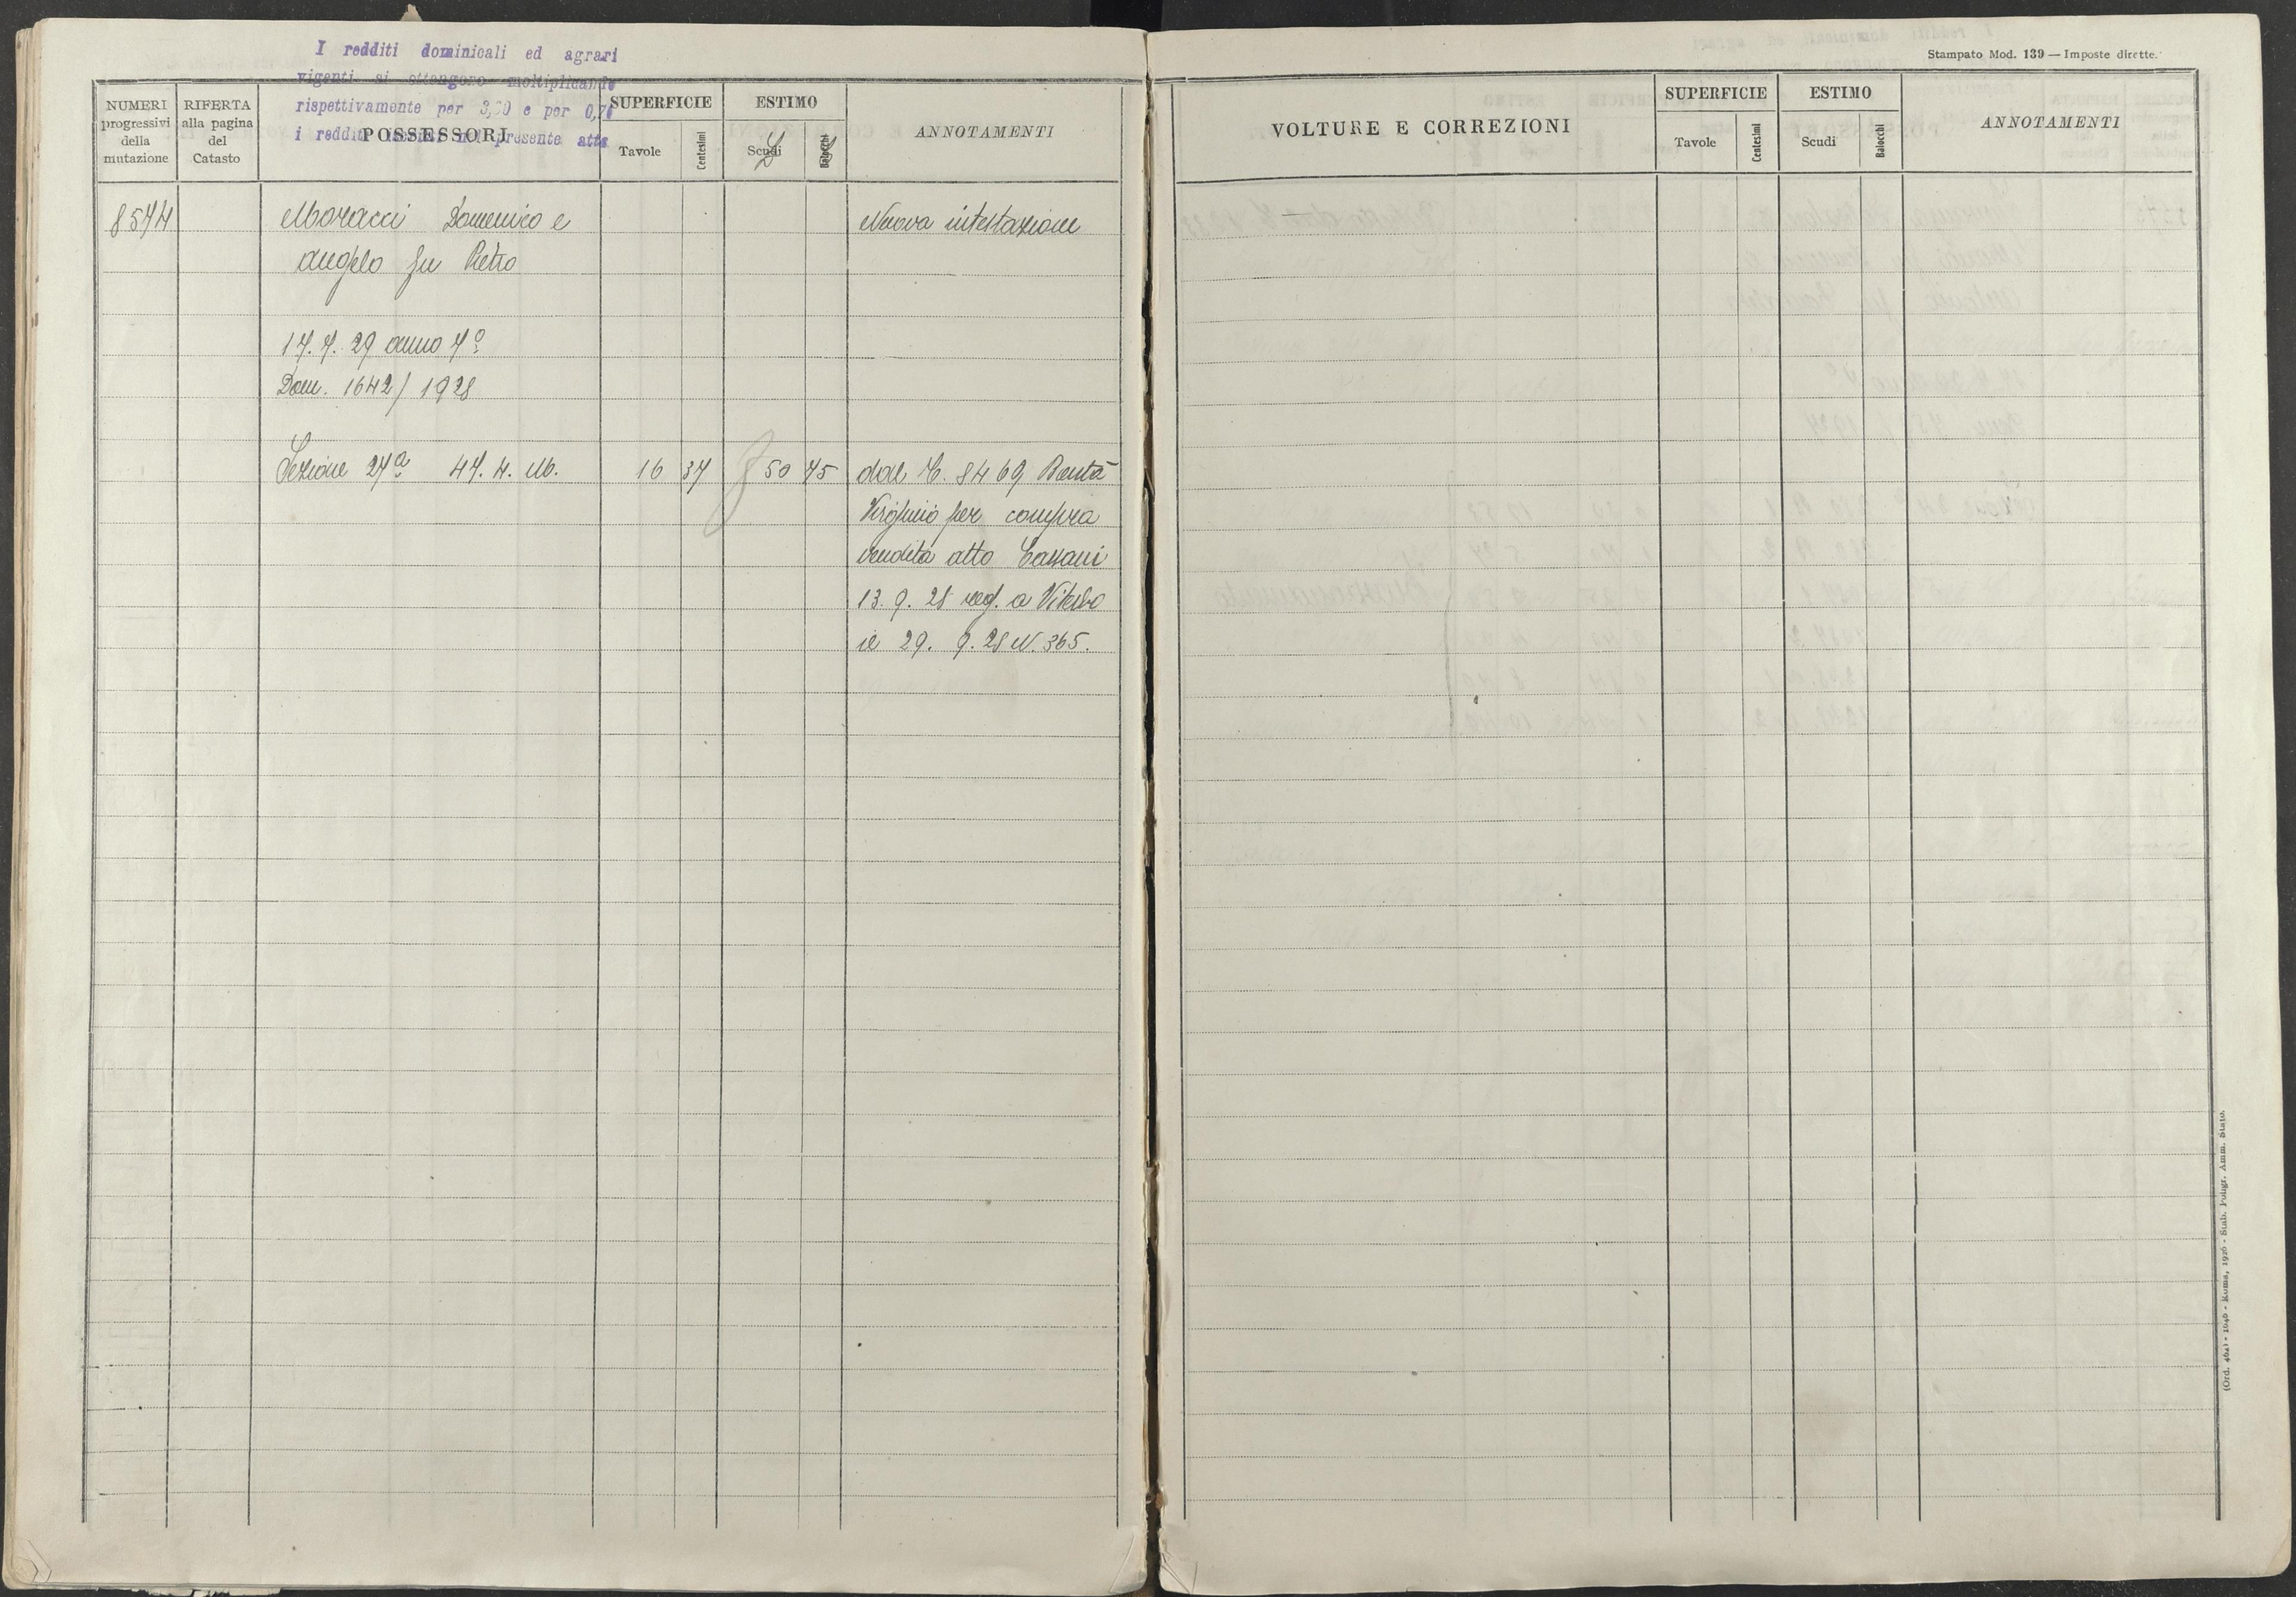 I redditi dominicali ed agrari
vigenti si ottengono moltiplicando
rispettivamente per 3,30 e per 0,70
i redditi presente atto
NUMERI
progressivi
della
mutazione
RIFERTA
alla pagina
del
Catasto
POSSESSORI
SUPERFICIE
Tavole
Centesimi
ESTIMO
Scudi
Baiocchi
ANNOTAMENTI
8574 Moracci Domenico e Nuova intestazione
Angelo fu Pietro
17. 7. 29 anno 7º
Dom. 1642/1928
Sezione 27ª 47. 4. M. 16 37 50 75 dal C. 8469
Virginio per compra
vendita atto Cassani
13. 9. 28 reg. a Viterbo
il 29. 9. 28 N. 365.
Stampato Mod. 139 — Imposte dirette.
VOLTURE E CORREZIONI
SUPERFICIE
Tavole
Centesimi
ESTIMO
Scudi
Baiocchi
ANNOTAMENTI
(Ord. 464) - 1640 - Roma, 1926 - Stab. Poligr. Amm. Stato.